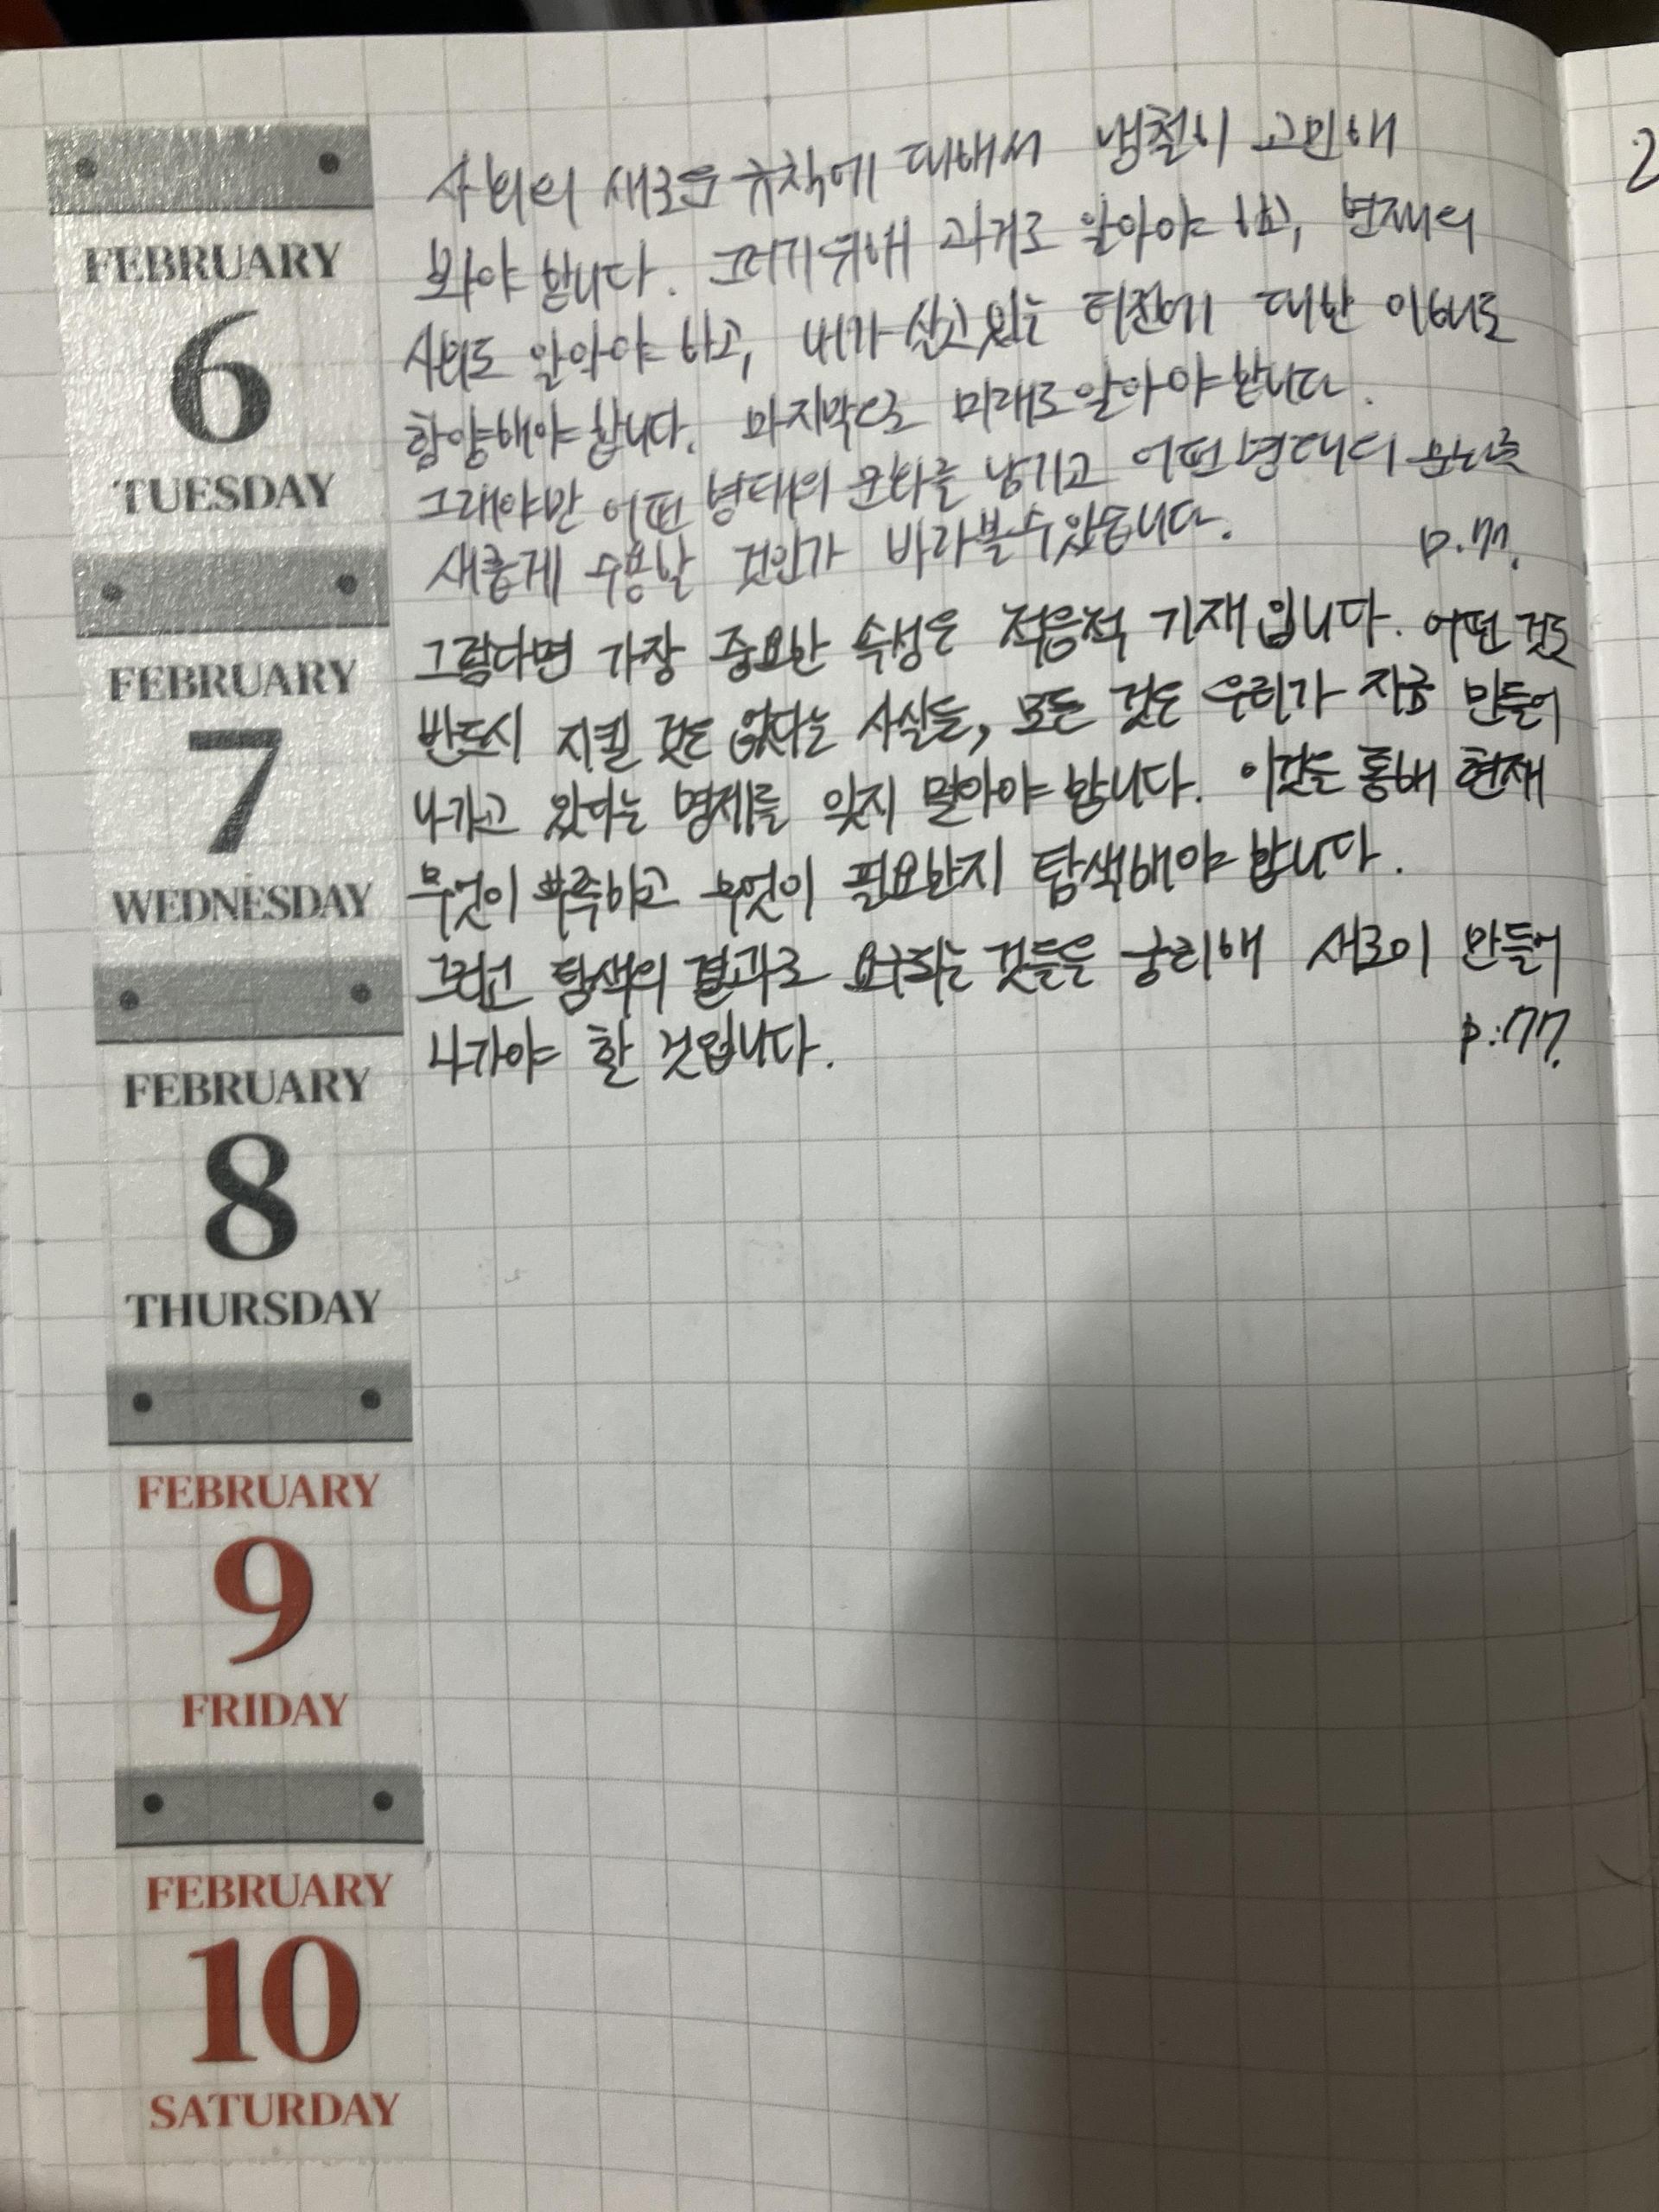 사회의 새로운 규칙에 대해서 냉철히 고민해
봐야 합니다. 그러기 위해 과거로 알아야 하고, 현재의
사회도 알아야 하고, 내가 살고 있는 터전에 대한 이해로
함양해야 합니다. 마지막으로 미래로 알아야 합니다.
그래야만 어떤 형태의 문화를 남기고 어떤 형태의 문화를
새롭게 수용할 것인가 바라볼 수 있습니다. p.77.
그렇다면 가장 중요한 속성은 적응적 기재입니다. 어떤 것도
반드시 지킬 것은 없다는 사실을, 모든 것은 우리가 지금 만들어
나가고 있다는 명제를 잊지 말아야 합니다. 이것을 통해 현재
무엇이 부족하고 무엇이 필요한지 탐색해야 합니다.
그리고 탐색의 결과로 요구되는 것들을 궁리해 새로이 만들어
나가야 할 것입니다. p.77.
FEBRUARY
6
TUESDAY
FEBRUARY
7
WEDNESDAY
FEBRUARY
8
THURSDAY
FEBRUARY
9
FRIDAY
FEBRUARY
10
SATURDAY
2